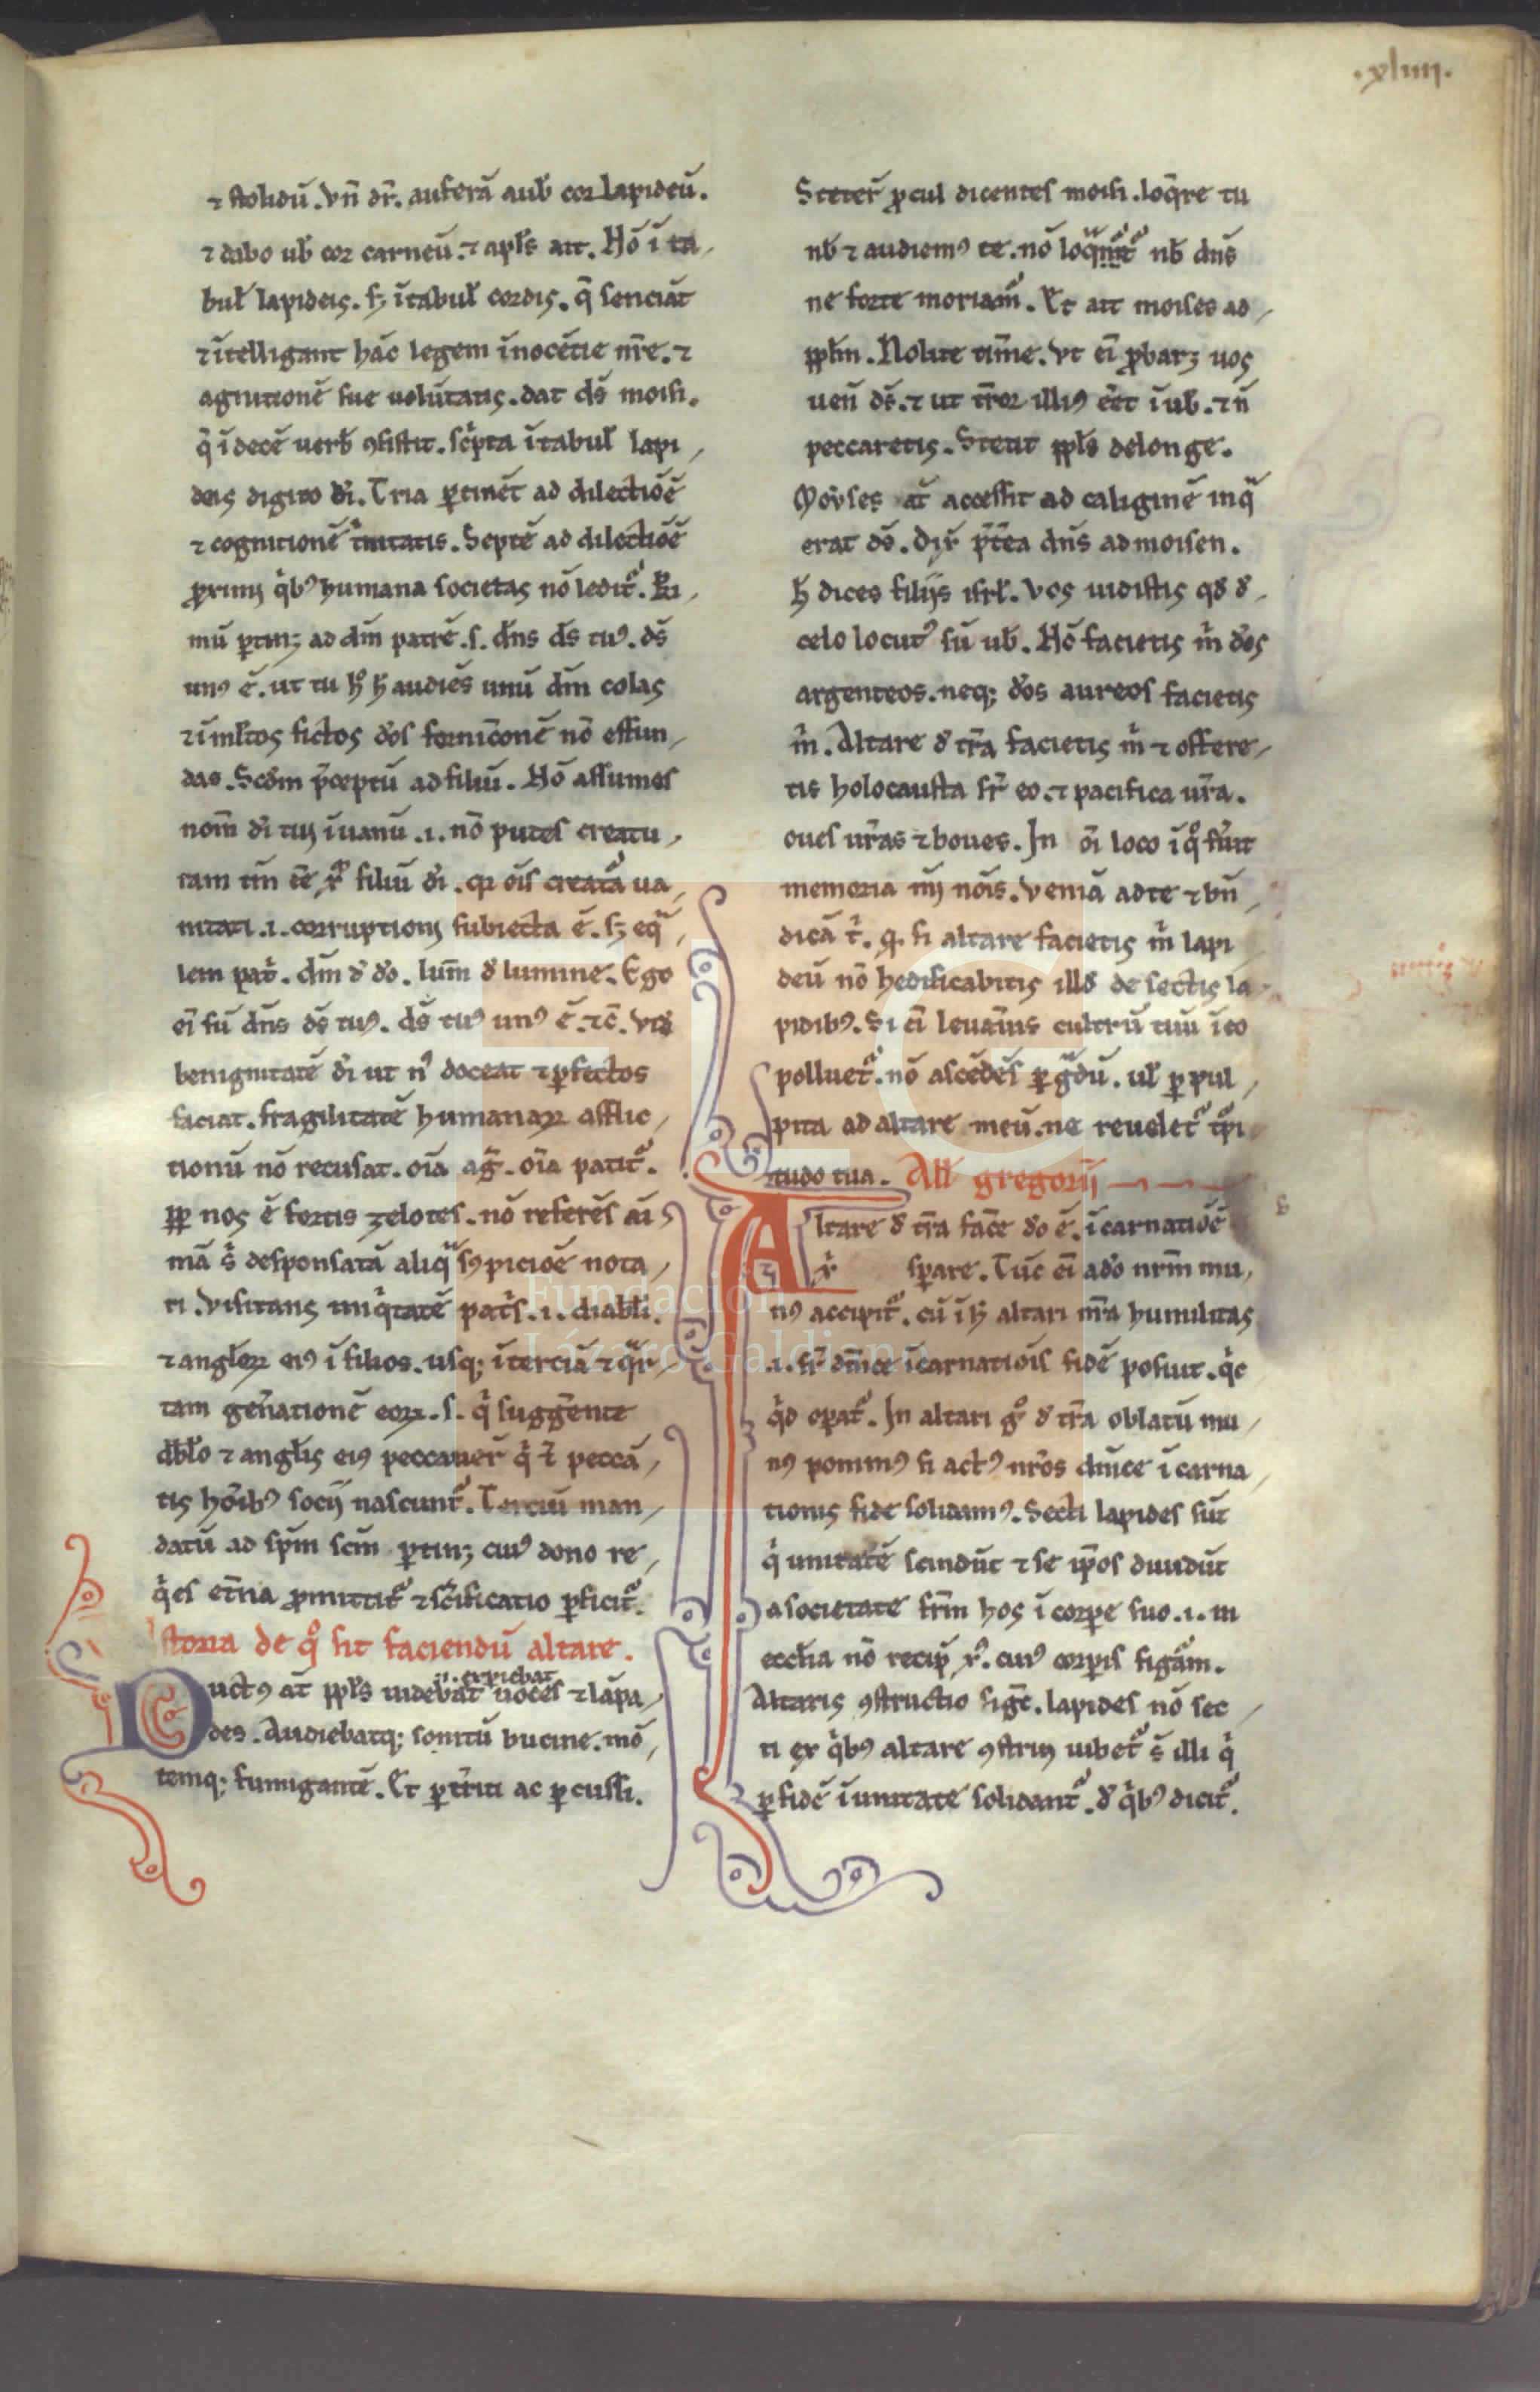 .xliiii.
⁊ stolidū. Vn̄ dr̄. auferā a uob̄ cor lapideū.
⁊ dabo uob̄ cor carneū. ⁊ apl̄s ait. Nō ī ta
bul̄ lapideis. sꝫ ī tabul̄ cordis. q̄ senciāt
⁊ ītelligant hāc legem īnocētie nr̄e. ⁊
agnitionē sue uolūtatis. dat d̄s moisi.
q̄ ī decē uerb̄ ꝯsistit. scͥpta ī tabul̄ lapi
deis digito dī. Tria ꝑtinēt ad dilectiōē
⁊ cognitionē tͥnitatis. Septē ad dilectiōē
ꝓximi qͥbꝰ humana societas nō ledit᷑. Pͥ
mū ꝑtinꝫ ad dm̄ patrē. s. dn̄s d̄s tuꝰ. d̄s
unꝰ ē. ut tu hᵒ h̄ audiēs unū dm̄ colas
⁊ ī ml̄tos fictos dōs fornicōnē nō effun
das. Scdm p̄ceptū ad filiū. Nō assumes
nom̄ dī tui ī uanū. .i. nō putes creatu
ram tm̄ c̄e xp̄ filiū dī. qꝛ oīs creatᷓa ua
nitati .i. corruptioni subiecta ē. sꝫ eqᷓ
lem patͥ. dm̄ đ dō. lum̄ đ lumine. Ego
eī sū dn̄s d̄s tuꝰ. d̄s tuꝰ unꝰ ē. ⁊c̄.
benignitatē dī ut nˢ doceat ⁊ ꝑfectos
faciat. fragilitatē humanaꝝ afflic
tionū nō recusat. oīa ag̃. oīa patit᷑.
ꝓp̄ nos ē fortis zelotes. nō referēs
mā s̄ desponsatā aliqᷓ sꝰpiciōē nota
ri. Visitans iniqͥtatē patͥs. .i. diabl̄i.
⁊ angl̄oꝝ eiꝰ ī filios. usqꝫ ī terciā ⁊ qᷓr
tam gen̄ationē eoꝝ. .s. qͥ sugḡente
dbl̄o ⁊ angl̄is eiꝰ peccauer̄ qͥ peccā
tis hōibꝰ socij nascunt᷑. Terciū man
datū ad sp̄m scm̄ ꝑtinꝫ cuiꝰ dono re
qͥes et̄na ꝓmittit᷑ ⁊ scīficatio ꝑficit᷑.
storia de qᵒ sit faciendū altare.
uctꝰ āt ppl̄s uidebat uoces ⁊ lāpa
expiebat
des. Audiebatqꝫ sonitū bucine. mō
temqꝫ fumigantē. Et ꝑtr̄iti ac ꝑcussi.
Steter̄ ꝓcul dicentes moisi. loq̄re tu
nb̄ ⁊ audiemꝰ te. nō loqᷓt᷑ nb̄ dn̄s
ne forte moriam᷑. Et ait moises ad
ppl̄m. Nolite tim̄e. Vt eī ꝓbarꝫ uos
uen̄ d̄s. ⁊ ut tr̄or illiꝰ ēet ī uob̄. ⁊ n̄
peccaretis. Stetit ppl̄s de longe.
Moyses āt accessit ad caliginē in qᷓ
erat d̄s. Dix̄ p̄t̄ea dn̄s ad moisen.
h̄ dices filijs isrl̄. Vos uidistis qđ đ
celo locutꝰ sū uob̄. Nō facietis m̄ dōs
argenteos. neqꝫ dōs aureos facietis
m̄. Altare đ tr̄a facietis m̄ ⁊ offere
tis holocausta sr̄ eo. ⁊ pacifica ur̄a.
oues ur̄as ⁊ boues. In oī loco ī qᵒ fūit
memoria mij nōis. Veniā ad te ⁊ bn̄
dicā tͥ. si altare facietis m̄ lapi
deū nō hedificabitis illđ de sectis la
pidibꝰ. Si eī leuaūis cultrū tuū ī eo
polluet᷑. nō ascēdes ꝑ gᷓdū. ul̄ ꝑ pul
pita ad altare meū. ne reuelet᷑ tˢpi
tudo tua. All̄ gregorij
Altare đ tr̄a fac̄e dō ē. īcarnatiōē
xͥ sꝑare. Tūc eī a dō nrm̄ mu
nꝰ accipit᷑. cū ī h̄ altari nr̄a humilitas
.i. sr̄ dn̄ice īcarnatiōis fidē posuit. qͥc
qͥd oꝑat᷑. In altari gᵒ đ tr̄a oblatū mu
nꝰ ponimꝰ si actꝰ nr̄os dn̄ice īcarna
tionis fide solidamꝰ. Secti lapides sūt
qͥ unitatē scindūt ⁊ se ip̄os diuidūt
a societate frm̄ hos ī corpe suo. .i. in
ecclīa nō recip̄ xͥ. cuiꝰ corꝑis figᷓam.
Altaris ꝯstructio sigc̄. lapides nō sec
ti ex qͥbꝰ altare ꝯstrui iubet᷑ s̄ illi qͥ
ꝑ fidē ī unitate solidant᷑. đ qͥbꝰ dicit᷑.
Fundación
Lázaro Galdiano